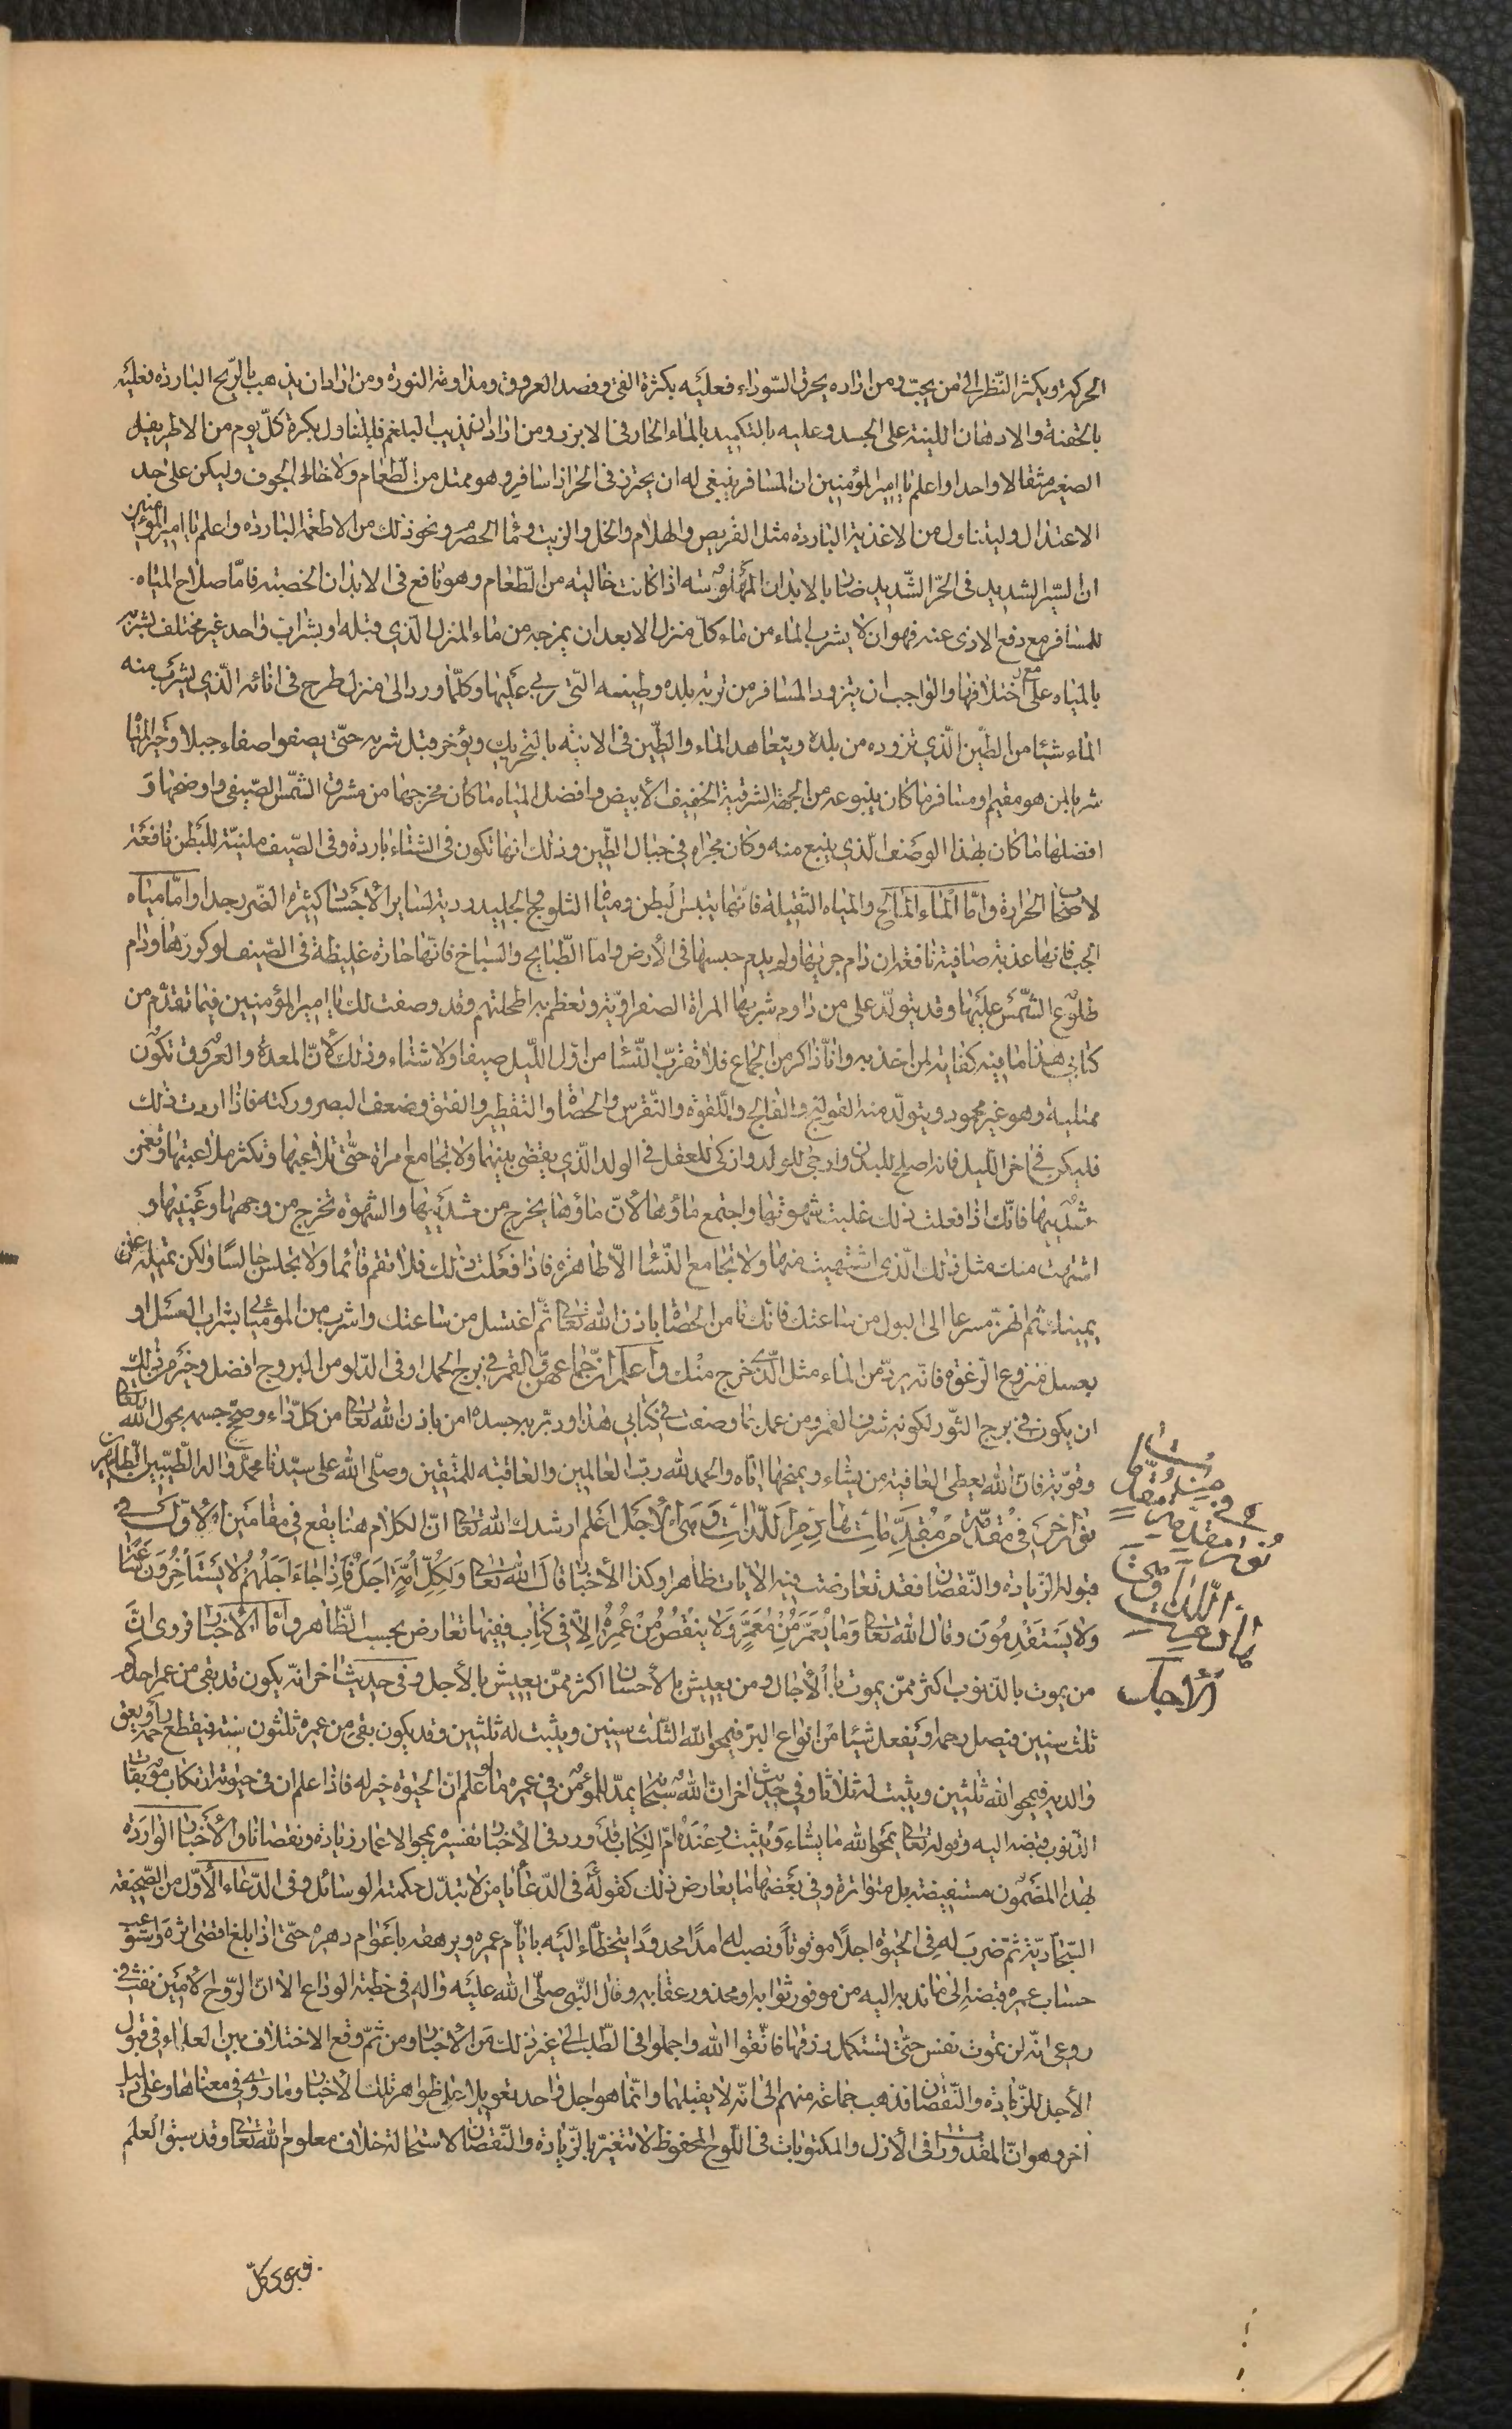 الحركة ويكثر النّظر الى من يحبّ ومن اراد ان يحرق السّوداء فعليه بكثرة القئ وفصد العروق ومداومة النورة ومن اراد ان يذهب بالرّيح الباردة فعليه
بالحقنة والادهان اللينة على الجسد وعليه بالتكميد بالماء الحار فى الابزن ومن اراد ان يذيب البلغم فليتناول بكرة كلّ يوم من الاطريفيل
الصغير مثقالا واحدا واعلم يا امير المؤمنين ان المسافر ينبغى له ان يحترز فى الحر اذا سافر وهو ممتل من الطعام ولا خالى الجوف وليكن على حد
الاعتدال وليتناول من الاغذية الباردة مثل القريص والهلام والخل والزيت وماء الحصرم ونحو ذلك من الاطعمة الباردة واعلم يا امير المؤمنين
ان السّير الشديد فى الحرّ الشّديد ضار بالابدان المهلوسة اذا كانت خالية من الطّعام وهو نافع فى الابدان الخصبة فامّا صلاح المياه
للمسافر مع دفع الاذى عنه فهو ان لا يشرب الماء من ماء كل منزل الا بعد ان يمزجه من ماء المنزل الّذي قبله او بشراب واحد غير مختلف يشربه
بالمياه على اختلافها والواجب ان يتزود المسافر من تربة بلده وطينه التّي ربي عليها وكلّما ورد الى منزل طرح فى انائه الّذي يشرب منه
الماء شيئا من الطّين الّذي تزوده من بلده ويتعاهد الماء والطّين فى الانية بالتحريك ويؤخر قبل شربه حتّى يصفوا صفاء جيدا وخير المياه
شربا لمن هو مقيم او مسافر ما كان ينبوعه من الجهة الشرقية الخفيف الأبيض وافضل المياه ما كان مخرجها من مشرق الشّمس الصّيفى واوضحها و
افضلها ما كان بهذا الوصف الّذي ينبع منه وكان مجراه في جبال الطّين وذلك انها تكون فى الشتاء باردة وفى الصّيف ملينة للبطن نافعة
لاصحاب الحرارة وامّا الماء المالح والمياه الثقيلة فانها يتبس البطن ومياه الثلوج والجليد ردية لسائر الأجساد كثيرة الضّرر جدا وامّا مياه
الجب فانها عذبة صافية نافعة ان دام جريها ولم يدم حبسها فى الأرض واما البطايح والسباخ فانها حارة غليظة فى الصّيف لركودها ودوام
طلوع الشّمس عليها وقد يتولّد على من داوم شربها المراة الصفراويّة وتعظم به اطحلتهم وقد وصفت لك يا امير المؤمنين فيما تقدّم من
كتابي هذا ما فيه كفاية لمن اخذ به وانا ذاكر من الجماع فلا تقرّب النّساء من اوّل اللّيل صيفا ولا شتاء وذلك لانّ المعدة والعروق تكون
ممتلية وهو غير محمود ويتولّد منه القولنج والفالج واللّقوة والنّقرس والحصاة والتقطير والفتق وضعف البصر وركته فاذا اردت ذلك
فليكن فى اخر اللّيل فانه اصلح للبدن وارجى للولد وازكى للعقل فى الولد الّذي يقضى بينهما ولا تجامع امراة حتّى تلاعبها وتكثر ملاعبتها وتغمز
ثدييها فانّك اذا فعلت ذلك غلبت شهوتها واجتمع ماؤها لأنّ ماؤها يخرج من ثدييها والشهوة تخرج من وجهها وعينيها و
اشتهت منك مثل ذلك الّذى اشتهيت منها ولا تجامع النّساء الّا طاهرة فاذا فعلت ذلك فلا تقم قائما ولا تجلس جالسًا ولكن تميل على
يمينك ثم انهض مسرعا الى البول من ساعتك فانّك تامن الحصاة باذن اللّه تعالى ثمّ اغتسل من ساعتك واشرب من الموميائي بشراب العسل او
بعسل منزوع الرّغوة فانّه يردّ من الماء مثل الّذى خرج منك واعلم انّ جماعهنّ والقمر في برج الحمل او فى الدّلو من البروج افضل وخير من ذلك
ان يكون فى برج الثّور لكونه شرف القمر ومن عمل بما وصفت فى كتابي هذا ودبّر به جسده امن باذن الله تعالى من كلّ داء وصحّ جسمه بحول اللّه تعالى
وقوّته فان الله يعطى العافية من يشاء ويمنحها اياه والحمد للّه ربّ العالمين والعاقبة للمتّقين وصلّى اللّه على سيّدنا محمّد واله الطّيبين الطّاهرين
نور اخر فى مقدّمة من مقدّمات هازم اللّذات وهى الأجل اعلم ارشدك الله تعالى انّ الكلام هنا يقع فى مقامين الأوّل فى
قبوله الزيادة والنّقصان فقد تعارضت فيه الايات ظاهرا وكذا الأخبار قال اللّه تعالى ولكلّ امّة اجل فاذا جاء اجلهم لا يستأخرون ساعة
ولا يستقدمون وقال اللّه تعالى وما يعمّر من معمّر ولا ينقص من عمره الّا فى كتاب ففيها تعارض بحسب الظّاهر وامّا الأخبار فروى انّ
من يموت بالذّنوب اكثر ممّن يموت بالأجال ومن يعيش بالأحسان اكثر ممّن يعيش بالأجل وفى حديث اخر انّه يكون قد بقى من عمر احدكم
ثلث سنين فيصل رحمه ويفعل شيئا من انواع البرّ فيمحوا اللّه الثّلث سنين ويثبت له ثلثين وقد يكون بقى من عمره ثلثون سنة فيقطع رحمه او يعق
والديه فيمحو اللّه ثلثين ويثبت له ثلاثا وفى حديث اخر انّ اللّه سبحانه يمدّ للمؤمن فى عمره ما علم ان الحيوة خير له فاذا علم ان فى حيوته ارتكاب موبقات
الذّنوب قبضه اليه وقوله تعالى يمحوا اللّه ما يشاء ويثبت وعنده امّ الكتاب قد ورد فى الأخبار تفسيره بمحو الاعمار زيادة ونقصانا والأخبار الواردة
بهذا المضمون مستفيضة بل متواترة وفى بعضها ما يعارض ذلك كقوله فى الدّعاء يا من لا تبدّل حكمته الوسائل وفى الدّعاء الأوّل من الصّحيفة
السّجادية ثمّ ضرب له فى الحيوة اجلًا موقوتا ونصب له امدًا محدودًا يتخطّاء اليه بايّام عمره ويرهقه باعوام دهره حتّى اذا بلغ اقصى اثره واستوعب
حساب عمره قبضه الى ما ندبه اليه من موفور ثوابه او محذور عقابه وقال النّبى صلّى اللّه عليه واله فى خطبة الوداع الا انّ الرّوح الأمين نفث فى
روعى انّه لن تموت نفس حتّى تستكمل رزقها فاتّقوا اللّه واجملوا فى الطّلب الى غير ذلك من الأخبار ومن ثمّ وقع الاختلاف بين العلماء فى قبول
الأجل للزّيادة والنّقصان فذهب جماعة منهم الى انّه لا يقبلهما وانّما هو اجل واحد تعويلا على ظواهر تلك الأخبار وما روى فى معناها وعلى دليل
اخر وهو انّ المقدورات فى الأزل والمكتوبات فى اللّوح المحفوظ لا تتغيّر بالزّيادة والنّقصان لاستحالة خلاف معلوم اللّه تعالى وقد سبق العلم
نور فى مقدمة
اللذات
الأجل